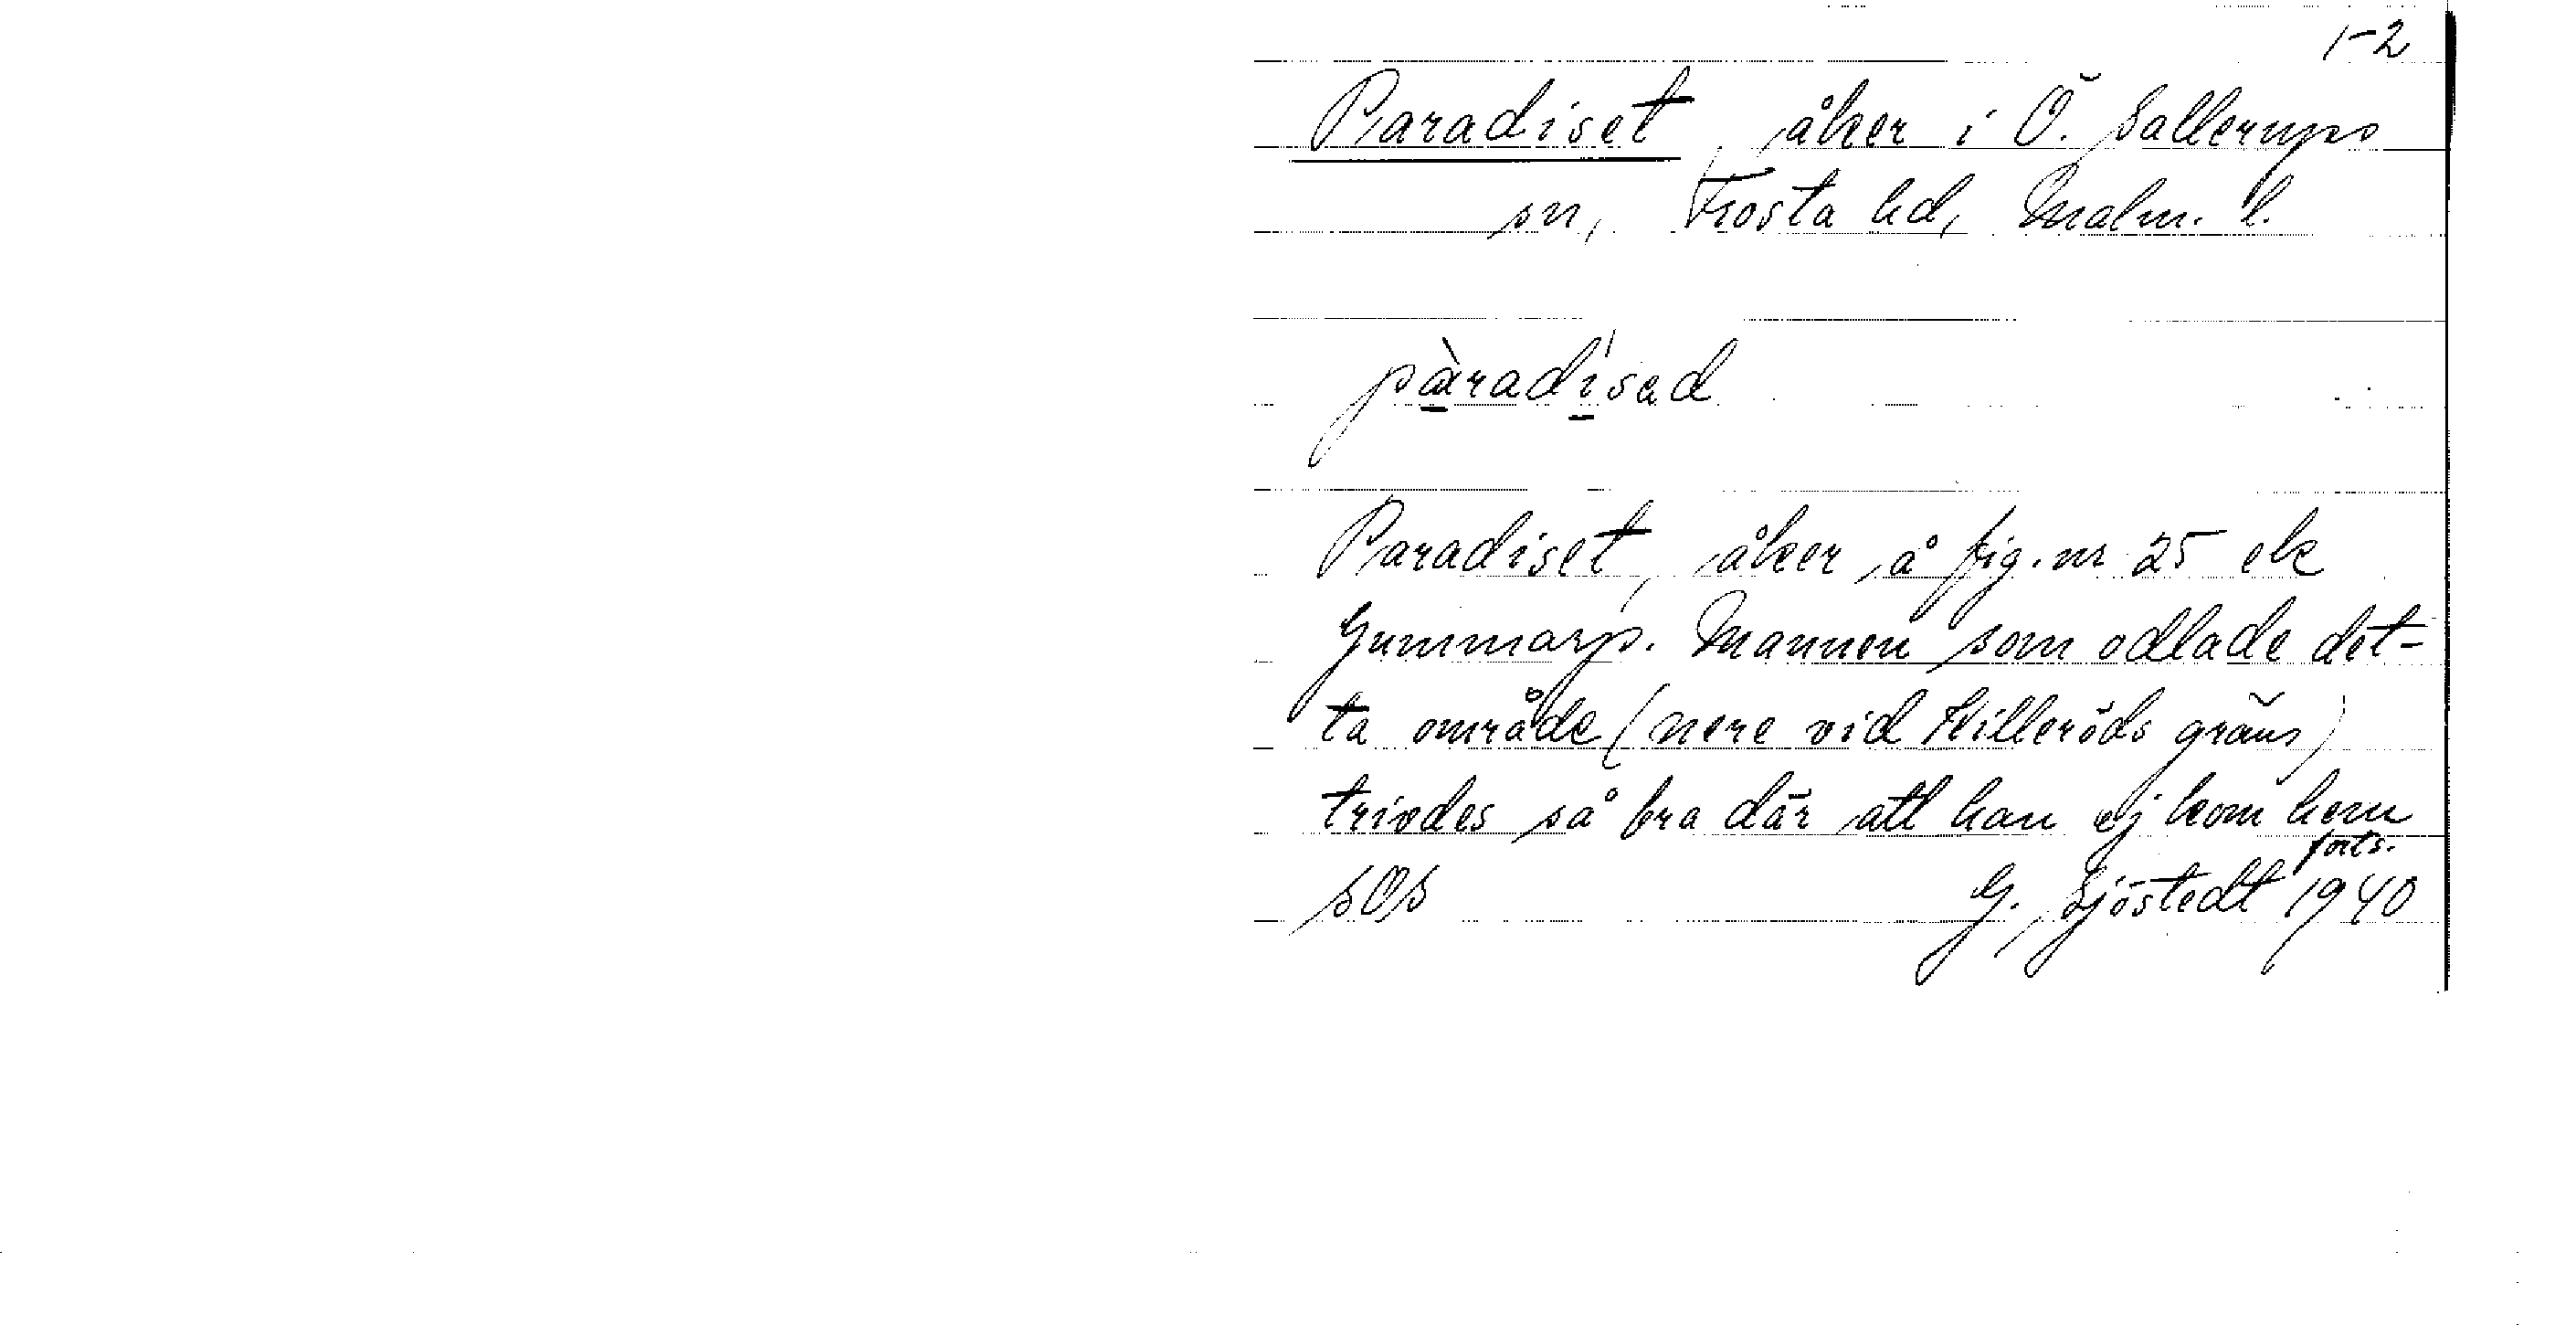 1-2
Paradiset, åker i Ö. Sallerups
sn, Frosta hd, Malm. l.
pàradi'sad
Paradiset, åker å fig. nr 25 ek
Gummarp. Mannen som odlade det-
ta område (nere vid Killeröds gräns)
trivdes så bra där att han ej kom hem
forts.
SOS G. Sjöstedt 1940